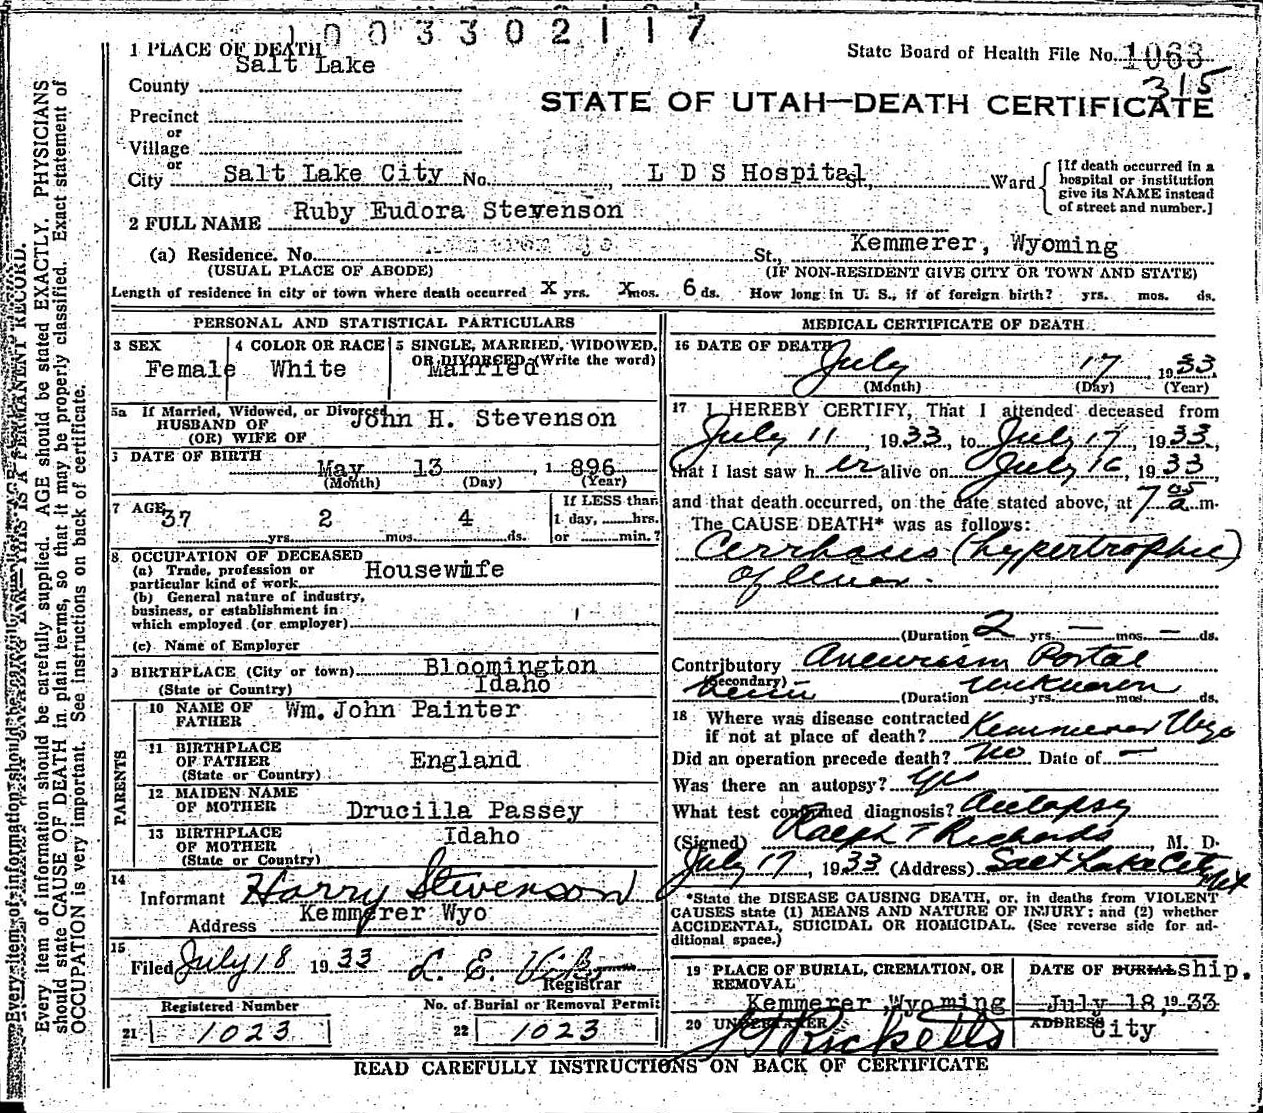 1003302117
1 PLACE OF DEATH
State Board of Health File No. 1063
315
Salt Lake
County
STATE OF UTAH—DEATH CERTIFICATE
Precinct
or
Village
or
City Salt Lake City No. L D S Hospital St., Ward
[If death occurred in a
hospital or institution
give its NAME instead
of street and number.]
2 FULL NAME Ruby Eudora Stevenson
(a) Residence. No. St., Kemmerer, Wyoming
(USUAL PLACE OF ABODE) (IF NON-RESIDENT GIVE CITY OR TOWN AND STATE)
Length of residence in city or town where death occurred X yrs. X mos. 6 ds. How long in U. S., if of foreign birth? yrs. mos. ds.
PERSONAL AND STATISTICAL PARTICULARS
3 SEX 4 COLOR OR RACE 5 SINGLE, MARRIED, WIDOWED,
OR DIVORCED (Write the word)
Female White Married
5a If Married, Widowed, or Divorced
HUSBAND OF John H. Stevenson
(OR) WIFE OF
DATE OF BIRTH
May 13, 1896
(Month) (Day) (Year)
7 AGE If LESS than
37 yrs. 2 mos. 4 ds. 1 day, hrs.
or min.?
8 OCCUPATION OF DECEASED
(a) Trade, profession or Housewife
particular kind of work
(b) General nature of industry,
business, or establishment in
which employed (or employer)
(c) Name of Employer
9 BIRTHPLACE (City or town) Bloomington
(State or Country) Idaho
PARENTS
10 NAME OF Wm. John Painter
FATHER
11 BIRTHPLACE
OF FATHER England
(State or Country)
12 MAIDEN NAME
OF MOTHER Drucilla Passey
13 BIRTHPLACE Idaho
OF MOTHER
(State or Country)
14
Informant Harry Stevenson
Address Kemmerer Wyo
15
Filed July 18 1933 L. E.
Registrar
Registered Number No. of Burial or Removal Permit
21 1023 22 1023
MEDICAL CERTIFICATE OF DEATH
16 DATE OF DEATH
July 17, 1933
(Month) (Day) (Year)
17 I HEREBY CERTIFY, That I attended deceased from
July 11, 1933, to July 17, 1933,
that I last saw her alive on July 16, 1933
and that death occurred, on the date stated above, at 7 05 a m.
The CAUSE DEATH* was as follows:
Cirrhosis (hypertrophic)
of liver.
(Duration 2 yrs. — mos. — ds.
Contributory Aneurism Portal
(Secondary) (Duration unknown yrs. mos. ds.
18 Where was disease contracted
if not at place of death? Kemmerer Wyo
Did an operation precede death? no Date of —
Was there an autopsy? yes
What test confirmed diagnosis? Autopsy
(Signed) Ralph T Richards, M. D.
July 17, 1933 (Address) Salt Lake City Ut
*State the DISEASE CAUSING DEATH, or, in deaths from VIOLENT
CAUSES state (1) MEANS AND NATURE OF INJURY; and (2) whether
ACCIDENTAL, SUICIDAL OR HOMICIDAL. (See reverse side for ad-
ditional space.)
19 PLACE OF BURIAL, CREMATION, OR
REMOVAL
Kemmerer Wyoming
DATE OF BURIAL ship.
July 18, 1933
20 UNDERTAKER ADDRESS
Ricketts City
READ CAREFULLY INSTRUCTIONS ON BACK OF CERTIFICATE
Every item of information should be carefully supplied. AGE should be stated EXACTLY. PHYSICIANS
should state CAUSE OF DEATH in plain terms, so that it may be properly classified. Exact statement of
OCCUPATION is very important. See instructions on back of certificate.